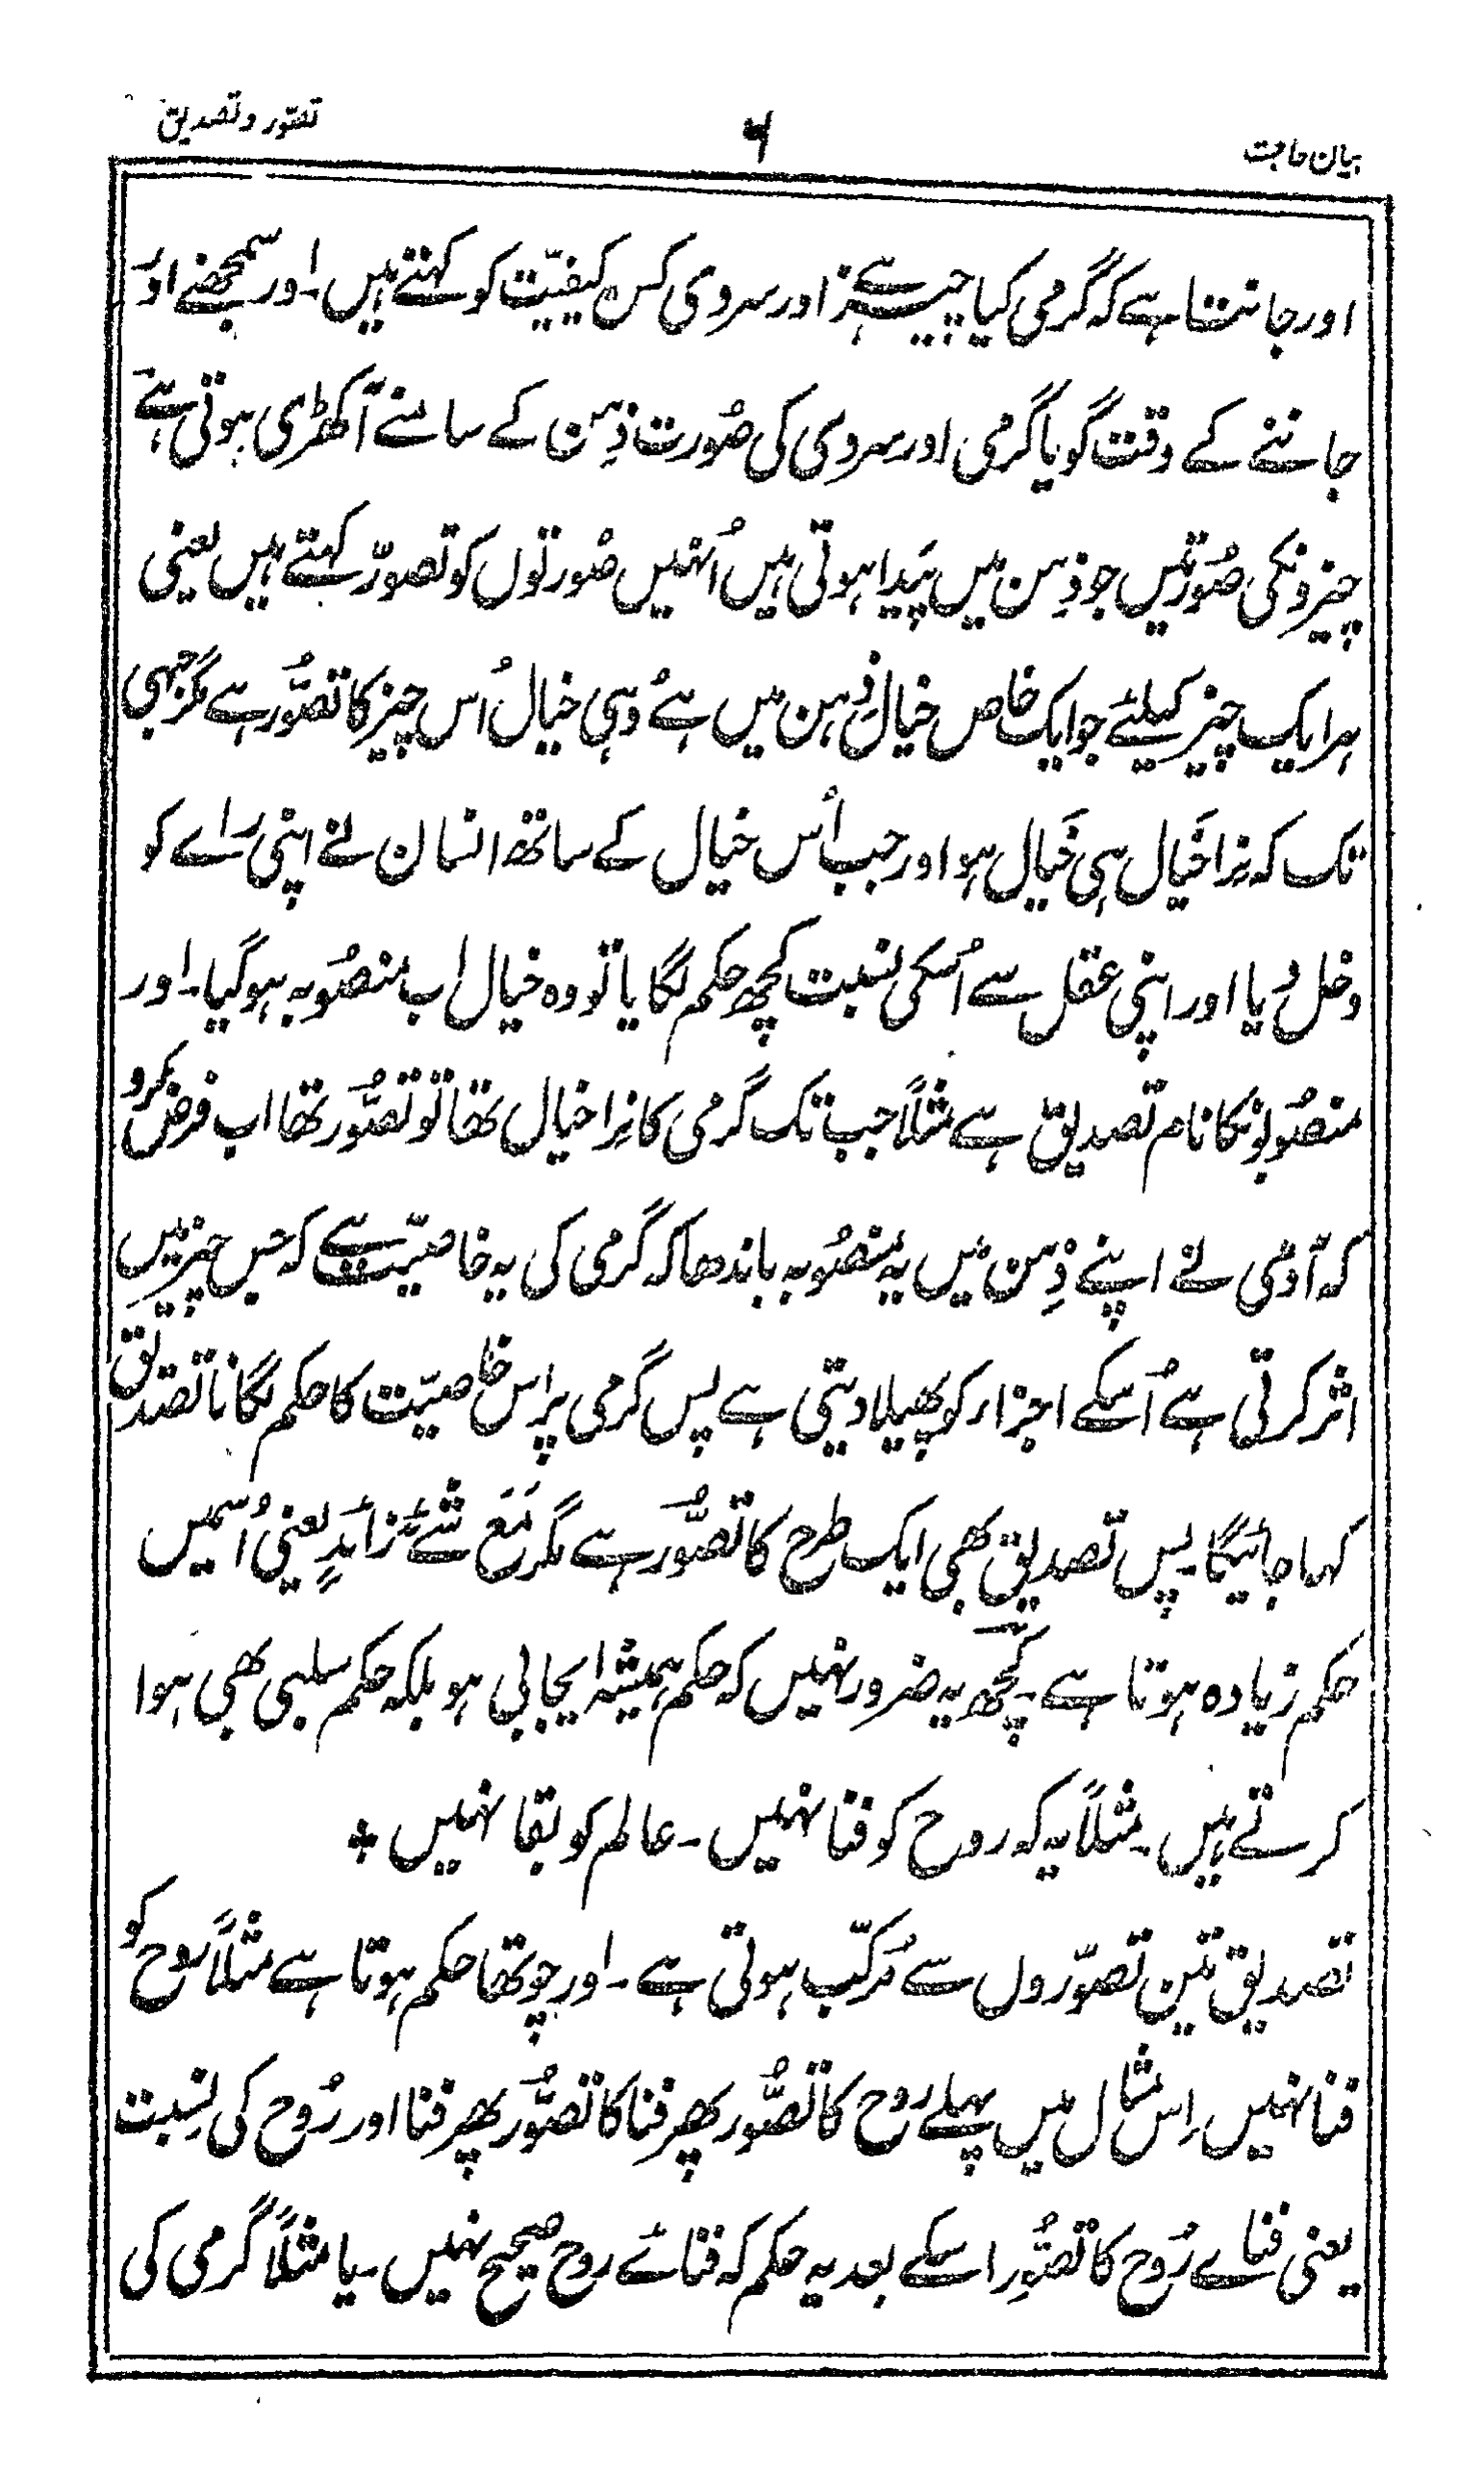 بیان حاجت
۶
تصوّر و تصدیق
اور جانتا ہے کہ گرمی کیا چیز ہے اور سردی کس کیفیّت کو کہتے ہیں۔ اور سمجھنے اور
جاننے کے وقت گویا گرمی اور سردی کی صُورت ذِہن کے سامنے آ کھڑی ہوتی ہے
چیزونکی صُورتیں جو ذِہن میں پَیدا ہوتی ہیں اُنہیں صُورتوں کو تصوّر کہتے ہیں یعنی
ہر ایک چیز کیلئے جو ایک خاص خیال ذِہن میں ہے وُہی خیال اُس چیز کا تصوُّر ہے مگر جبہی
تک کہ نِرا خَیال ہی خَیال ہو اور جب اُس خیال کے ساتھ انسان نے اپنی راے کو
دخل دیا اور اپنی عقل سے اُسکی نسبت کچھ حکم لگایا تو وہ خیال اب منصُوبہ ہو گیا۔ اور
منصُوبونکا نام تصدیق ہے مثلاً جب تک گرمی کا نِرا خیال تھا تو تصوُّر تھا اب فرض کرو
کہ آدمی نے اپنے ذِہن میں یہ منصُوبہ باندھا کہ گرمی کی یہ خاصیّت ہے کہ جس چیز میں
اثر کرتی ہے اُسکے اجزار کو پھیلا دیتی ہے پس گرمی پر اس خاصیّت کا حکم لگانا تصدیق
کہا جائیگا۔ پس تصدیق بھی ایک طرح کا تصوُّر ہے مگر مَعَ شَےٍ زائدٍ یعنی اُسمیں
حکم زیادہ ہوتا ہے۔ کچھ یہ ضرور نہیں کہ حکم ہمیشہ ایجابی ہو بلکہ حکم سلبی بھی ہوا
کرتے ہیں۔ مثلاً یہ کہ روح کو فنا نہیں۔ عالم کو بقا نہیں +
تصدیق تین تصوّروں سے مُرکّب ہوتی ہے۔ اور چوتھا حکم ہوتا ہے مثلاً روح کو
فنا نہیں اِس مثال میں پہلے روح کا تصوُّر پھر فنا کا تصوُّر پھر فنا اور رُوح کی نِسبت
یعنی فناے رُوح کا تصوُّر اسکے بعد یہ حکم کہ فناے روح صحیح نہیں۔ یا مثلاً گرمی کی